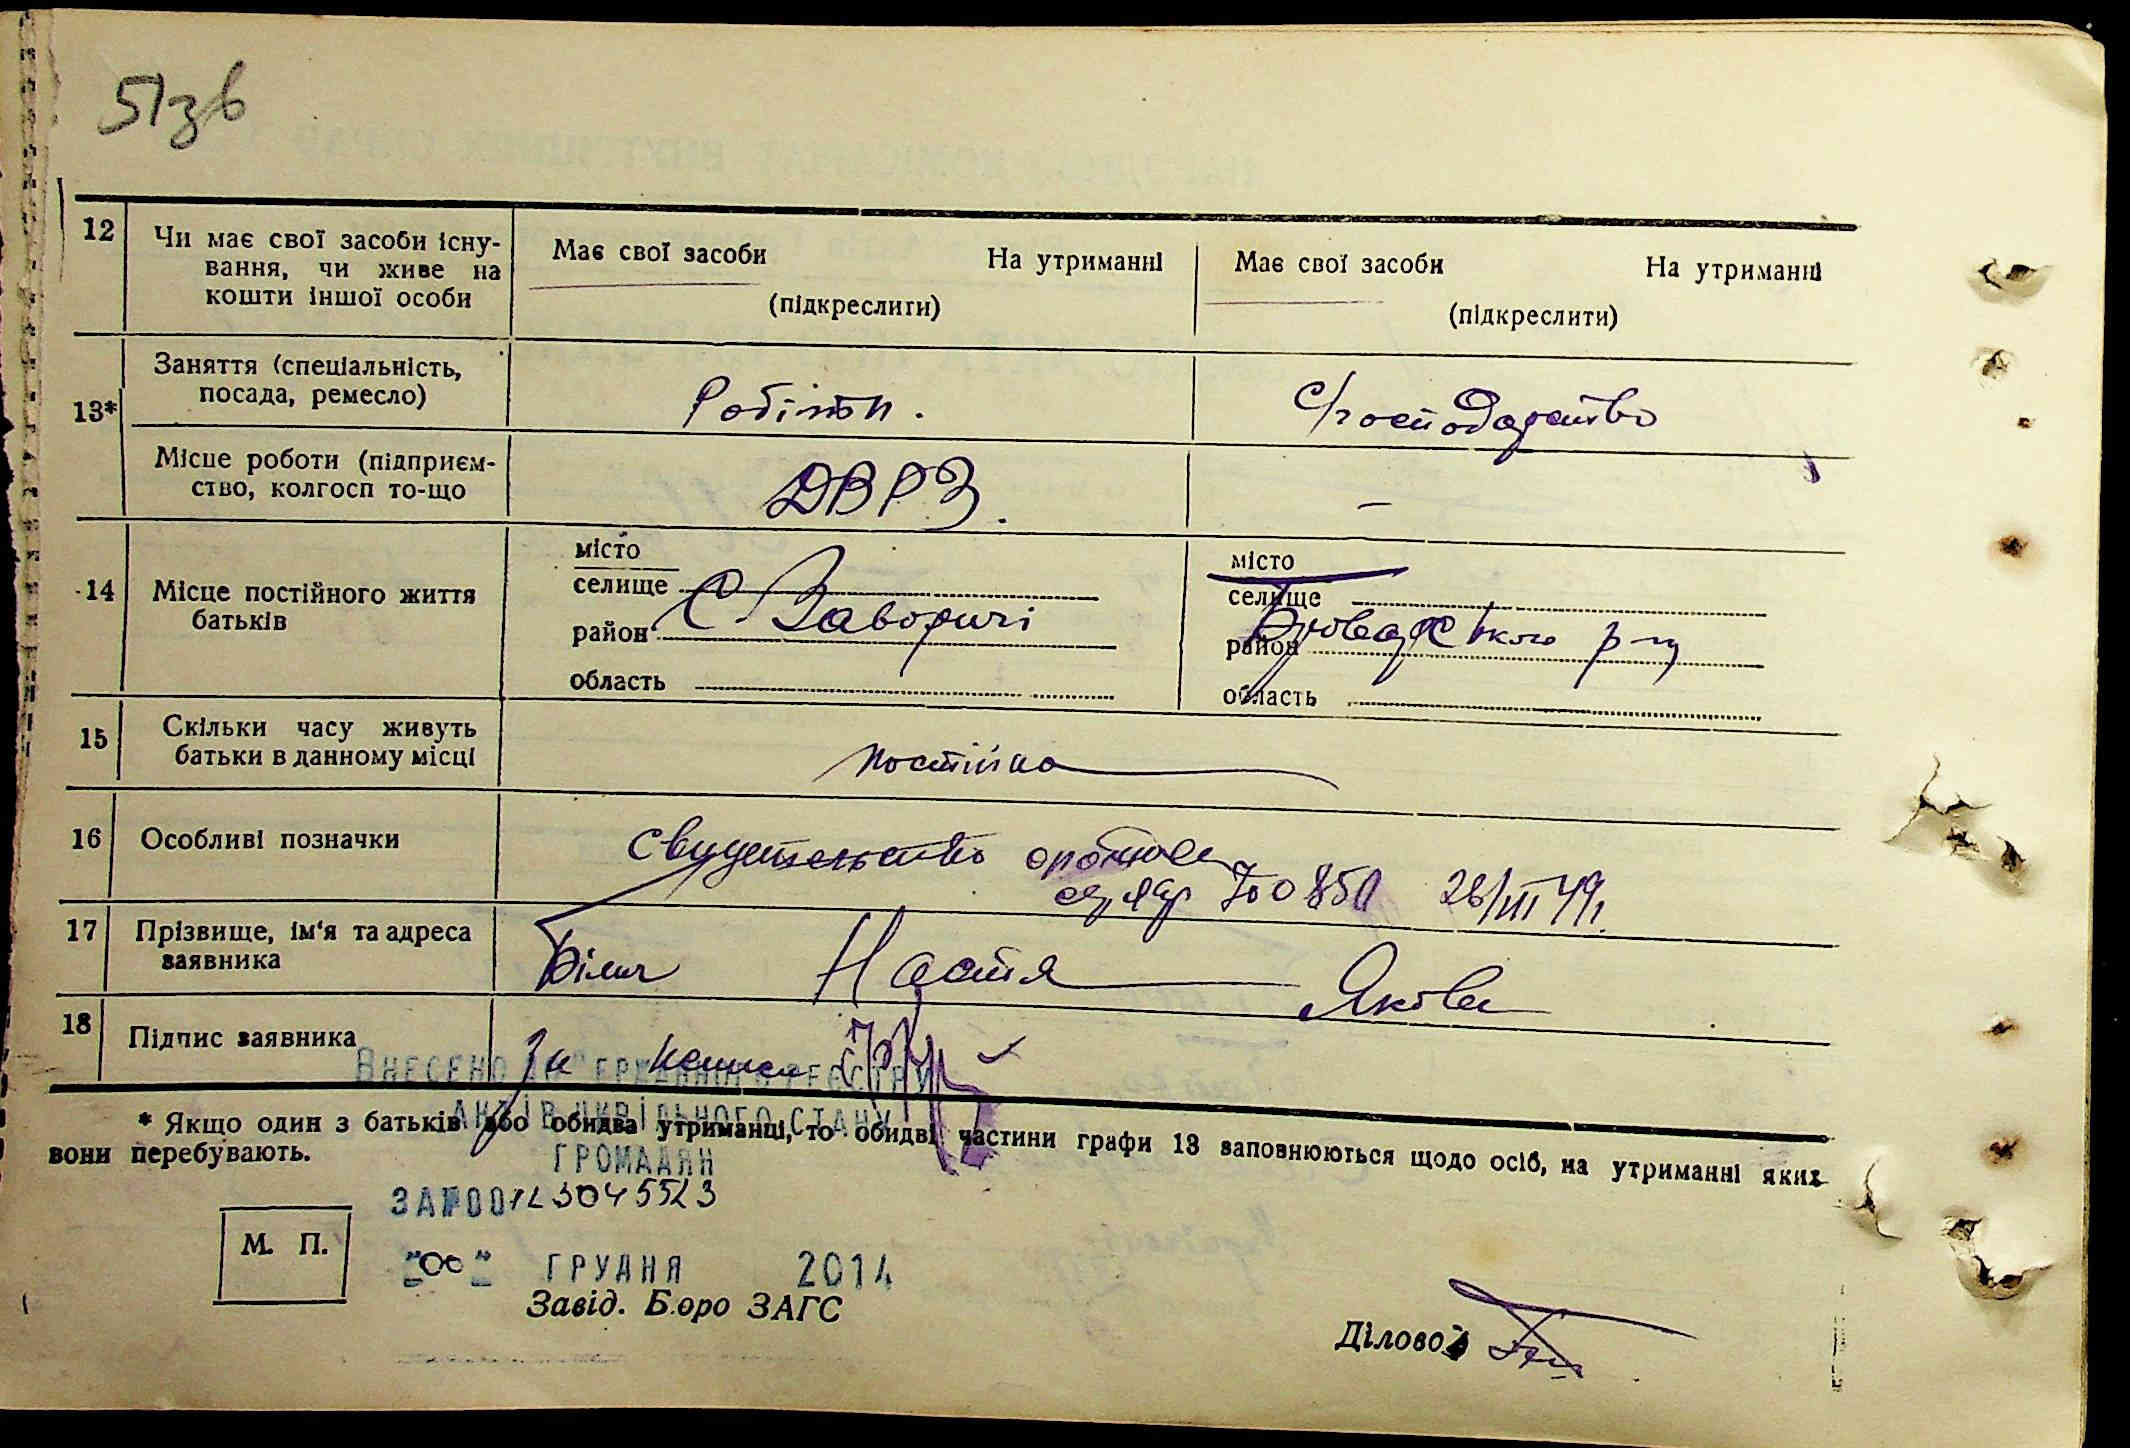 51зв
12
Чи має свої засоби існу-
вання, чи живе на
кошти іншої особи
Має свої засоби На утриманні
(підкреслити)
Має свої засоби На утриманні
(підкреслити)
13*
Заняття (спеціальність,
посада, ремесло)
Робітн.
с/господарство
Місце роботи (підприєм-
ство, колгосп то-що
ДВРЗ.
–
14
Місце постійного життя
батьків
місто
селище
район
область
С. Заворичі
місто
селище
район
область
Броварського р-ну
15
Скільки часу живуть
батьки в данному місці
постійно
16
Особливі позначки
свидетельство
700850 28/III 49г.
17
Прізвище, ім'я та адреса
заявника
Білич Настя Яковл
18
Підпис заявника
За
ВНЕСЕНО ДО ДЕРЖАВНОГО РЕЄСТРУ
АКТІВ ЦИВІЛЬНОГО СТАНУ
ГРОМАДЯН
* Якщо один з батьків або обидва утриманці, то обидві частини графи 13 заповнюються щодо осіб, на утриманні яких
вони перебувають.
М. П.
ГРУДНЯ 2014
Завід. Бюро ЗАГС
Діловод